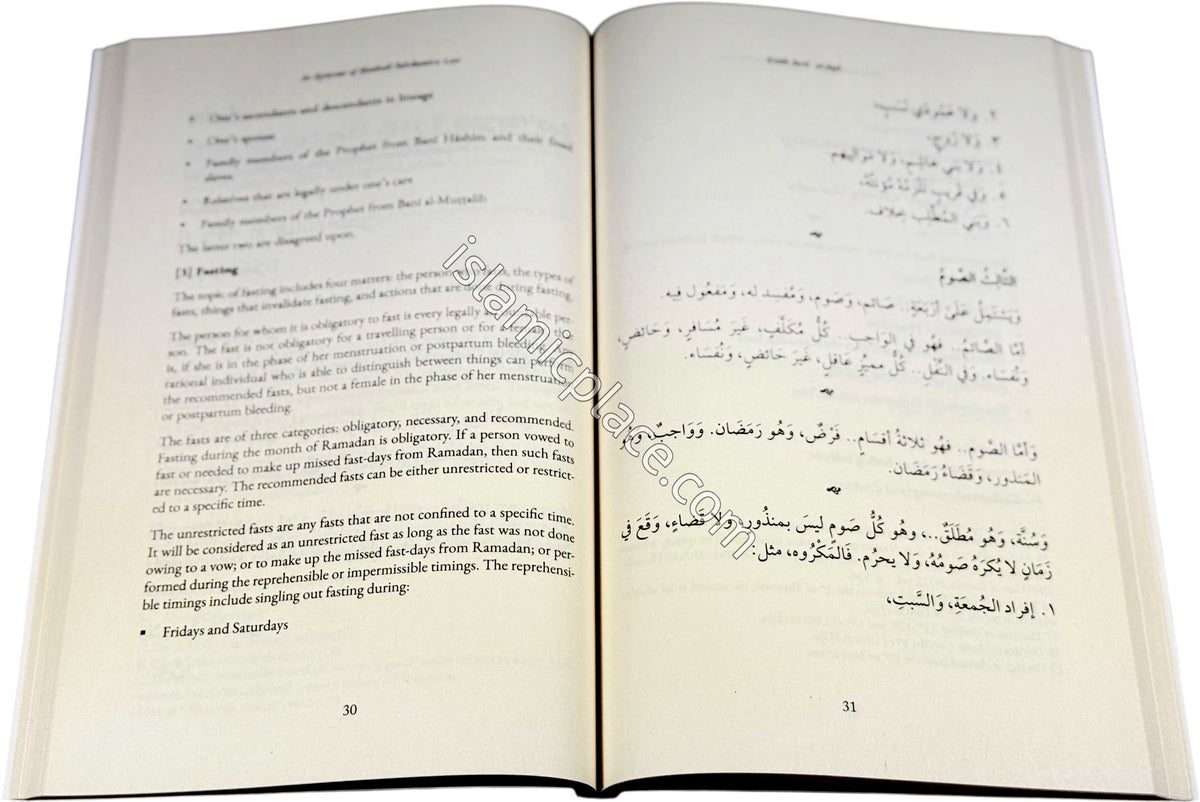 An Epitome of Hanbali Substantive Law
▪ One's ascendants and descendants in lineage
▪ One's spouse
▪ Family members of the Prophet from Banī Hāshim and their freed
slaves
▪ Relatives that are legally under one's care
▪ Family members of the Prophet from Banī al-Muṭṭalib
The latter two are disagreed upon.
[3] Fasting
The topic of fasting includes four matters: the person who fasts, the types of
fasts, things that invalidate fasting, and actions that are done during fasting.
The person for whom it is obligatory to fast is every legally accountable per-
son. The fast is not obligatory for a travelling person or for a female, that
is, if she is in the phase of her menstruation or postpartum bleeding. Any
rational individual who is able to distinguish between things can perform
the recommended fasts, but not a female in the phase of her menstruation
or postpartum bleeding.
The fasts are of three categories: obligatory, necessary, and recommended.
Fasting during the month of Ramadan is obligatory. If a person vowed to
fast or needed to make up missed fast-days from Ramadan, then such fasts
are necessary. The recommended fasts can be either unrestricted or restrict-
ed to a specific time.
The unrestricted fasts are any fasts that are not confined to a specific time.
It will be considered as an unrestricted fast as long as the fast was not done
owing to a vow; or to make up the missed fast-days from Ramadan; or per-
formed during the reprehensible or impermissible timings. The reprehensi-
ble timings include singling out fasting during:
▪ Fridays and Saturdays
30
٢. وَلا عَمُودَي نَسَبٍ
٣. وَلا زَوجٍ.
٤. وَلا بَني هَاشِمٍ، وَلا مَوَالِيهم.
٥. وَفي قَرِيبٍ تَلزَمُهُ مُؤنَتُهُ،
٦. وَبَني المُطَّلِبِ خِلاف.
الثَّالِثُ الصَّومُ
وَيَشتَمِلُ عَلَىٰ أَربَعَةٍ.. صَائم، وَصَوم، وَمُفسِد له، وَمَفعُول فِيه.
أمَّا الصَّائمُ.. فهُو في الوَاجبِ.. كُلُّ مُكَلَّفٍ، غَيرَ مُسَافرٍ، وَحَائضٍ،
وَنُفسَاء. وَفي النَّفْلِ.. كلُّ مميِّزٍ عَاقلٍ، غَيرَ حَائضٍ، وَنُفسَاء.
وَأمَّا الصَّوم.. فهُو ثلاثةُ أقسَامٍ.. فَرْضٌ، وَهُو رَمَضَان. وَوَاجبٌ، وَهُو
المَنذور، وَقَضَاءُ رَمَضَان.
وَسُنَّة، وَهُو مُطلَقٌ..، وَهُو كُلُّ صَومٍ ليسَ بمنذُورٍ، وَلا قضَاءٍ، وَقَعَ في
زَمَانٍ لا يُكرَهُ صَومُهُ، وَلا يحرُم. فَالمَكْرُوه، مثل:
١. إفراد الجُمعَةِ، وَالسَّبتِ،
31
islamicplace.com